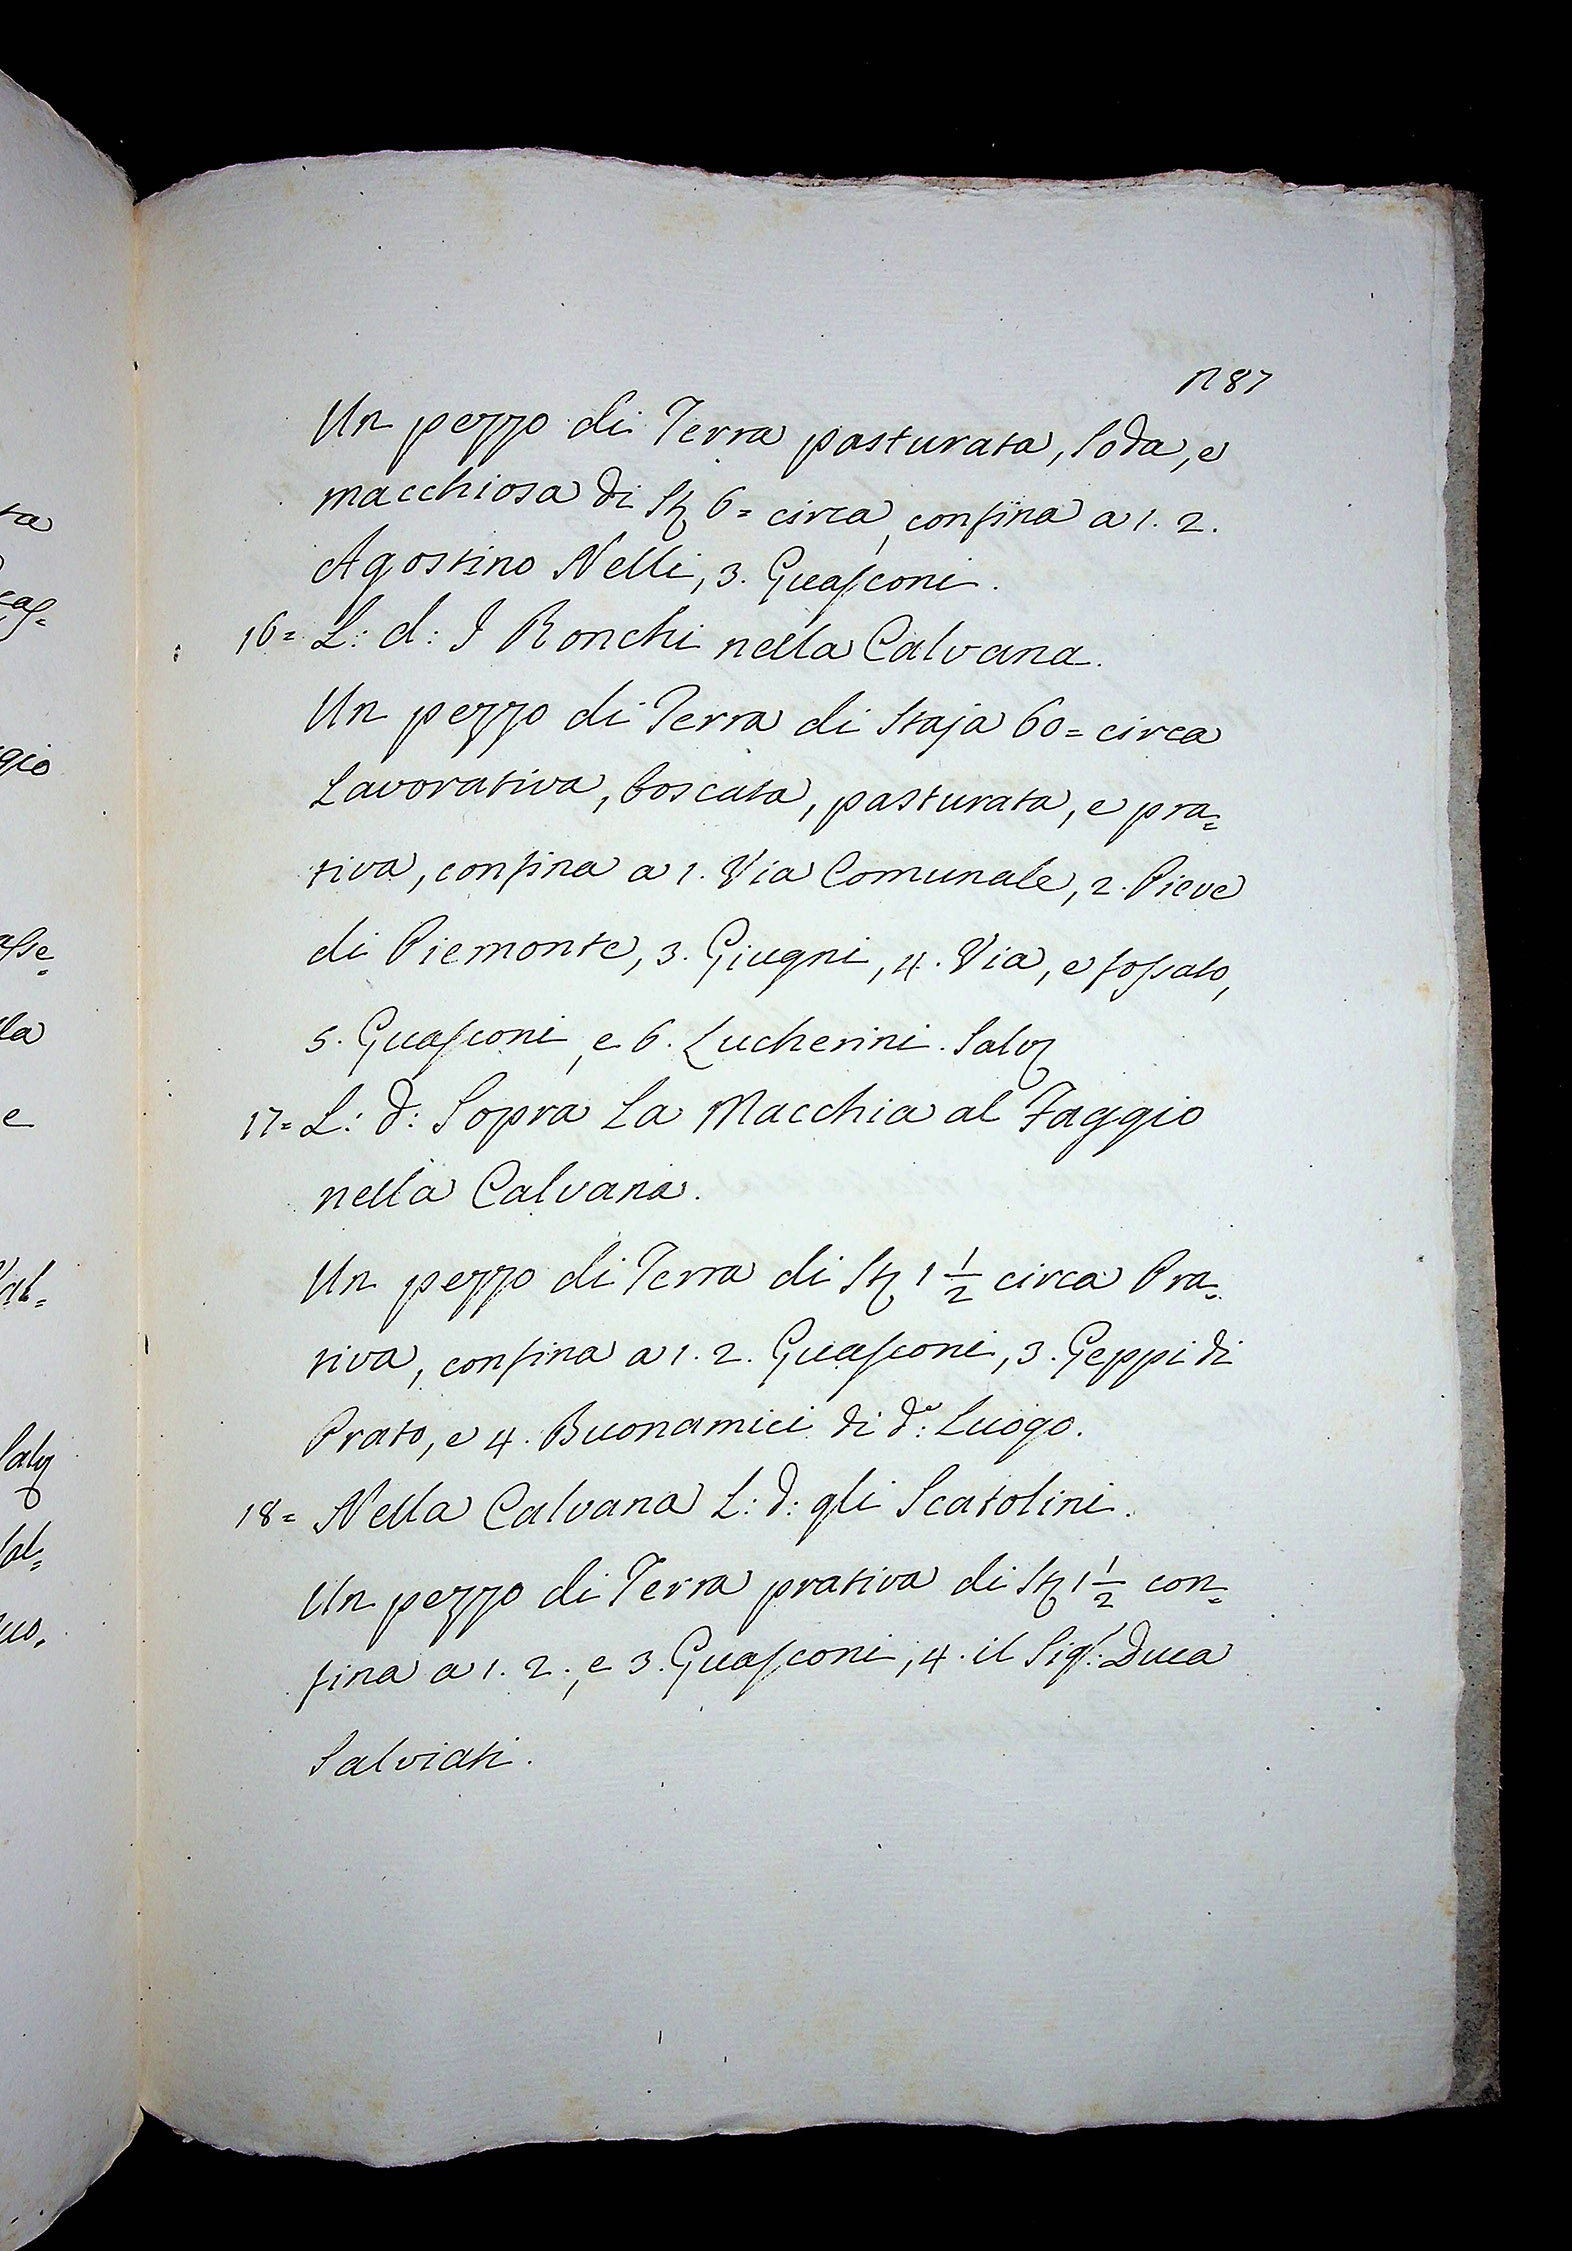 1187
Un pezzo di Terra pasturata, soda, e
macchiosa di St 6= circa, confina a 1. 2.
Agostino Nelli, 3. Guasconi.
16= L: d: I Ronchi nella Calvana.
Un pezzo di Terra di Staja 60= circa
Lavorativa, boscata, pasturata, e pra=
tiva, confina a 1. Via Comunale, 2. Pieve
di Piemonte, 3. Giugni, 4. Via, e fossato,
5. Guasconi, e 6. Lucherini. Salv
17= L: d: Sopra La Macchia al Faggio
nella Calvana.
Un pezzo di Terra di St 1 1/2 circa Pra=
tiva, confina a 1. 2. Guasconi, 3. Geppi di
Prato, e 4. Buonamici di d.o Luogo.
18= Nella Calvana L: d: gli Scatolini.
Un pezzo di Terra prativa di St 1 1/2 con=
fina a 1. 2., e 3. Guasconi, 4. il Sig.r Duca
Salviati.